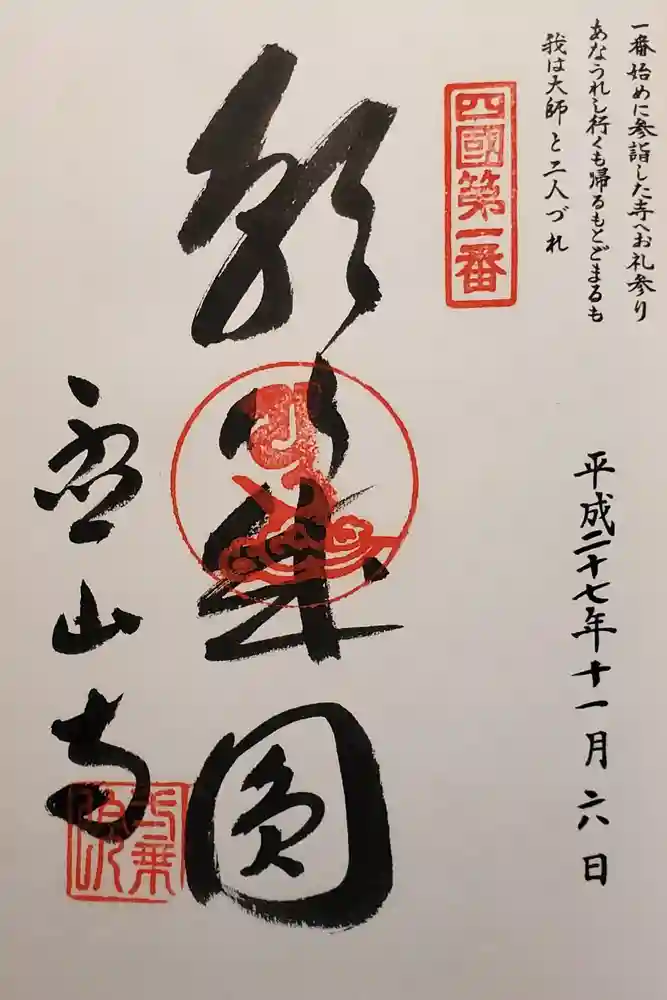 一番始めに参詣した寺へお礼参り
あなうれし行くも帰るもとどまるも
我は大師と二人づれ
四國第一番
平成二十七年十一月六日
願
圓
霊山寺